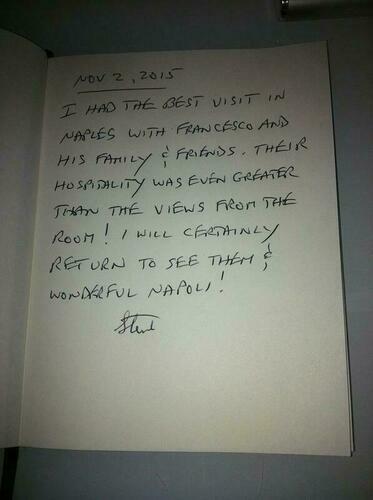 NOV 2, 2015
I HAD THE BEST VISIT IN
NAPLES WITH FRANCESCO AND
HIS FAMILY & FRIENDS. THEIR
HOSPITALITY WAS EVEN GREATER
THAN THE VIEWS FROM THE
ROOM! I WILL CERTAINLY
RETURN TO SEE THEM &
WONDERFUL NAPOLI!